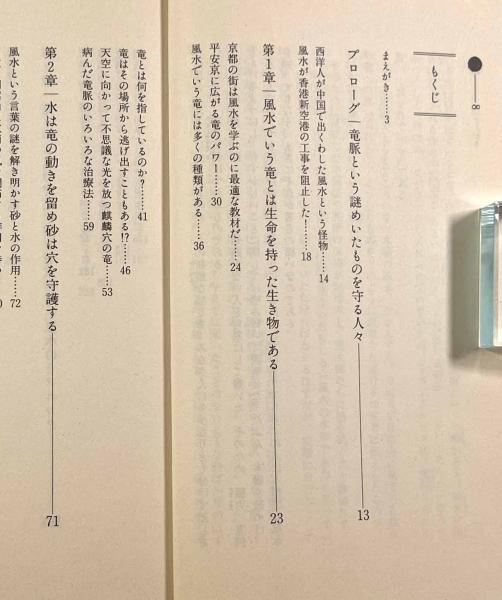 8
もくじ
まえがき……3
プロローグ｜竜脈という謎めいたものを守る人々 13
西洋人が中国で出くわした風水という怪物……14
風水が香港新空港の工事を阻止した！……18
第1章｜風水でいう竜とは生命を持った生き物である 23
京都の街は風水を学ぶのに最適な教材だ……24
平安京に広がる竜のパワー……30
風水でいう竜には多くの種類がある……36
竜とは何を指しているのか？……41
竜はその場所から逃げ出すこともある!?……46
天空に向かって不思議な光を放つ麒麟穴の竜……53
病んだ竜脈のいろいろな治療法……59
第2章｜水は竜の動きを留め砂は穴を守護する 71
風水という言葉の謎を解き明かす砂と水の作用……72